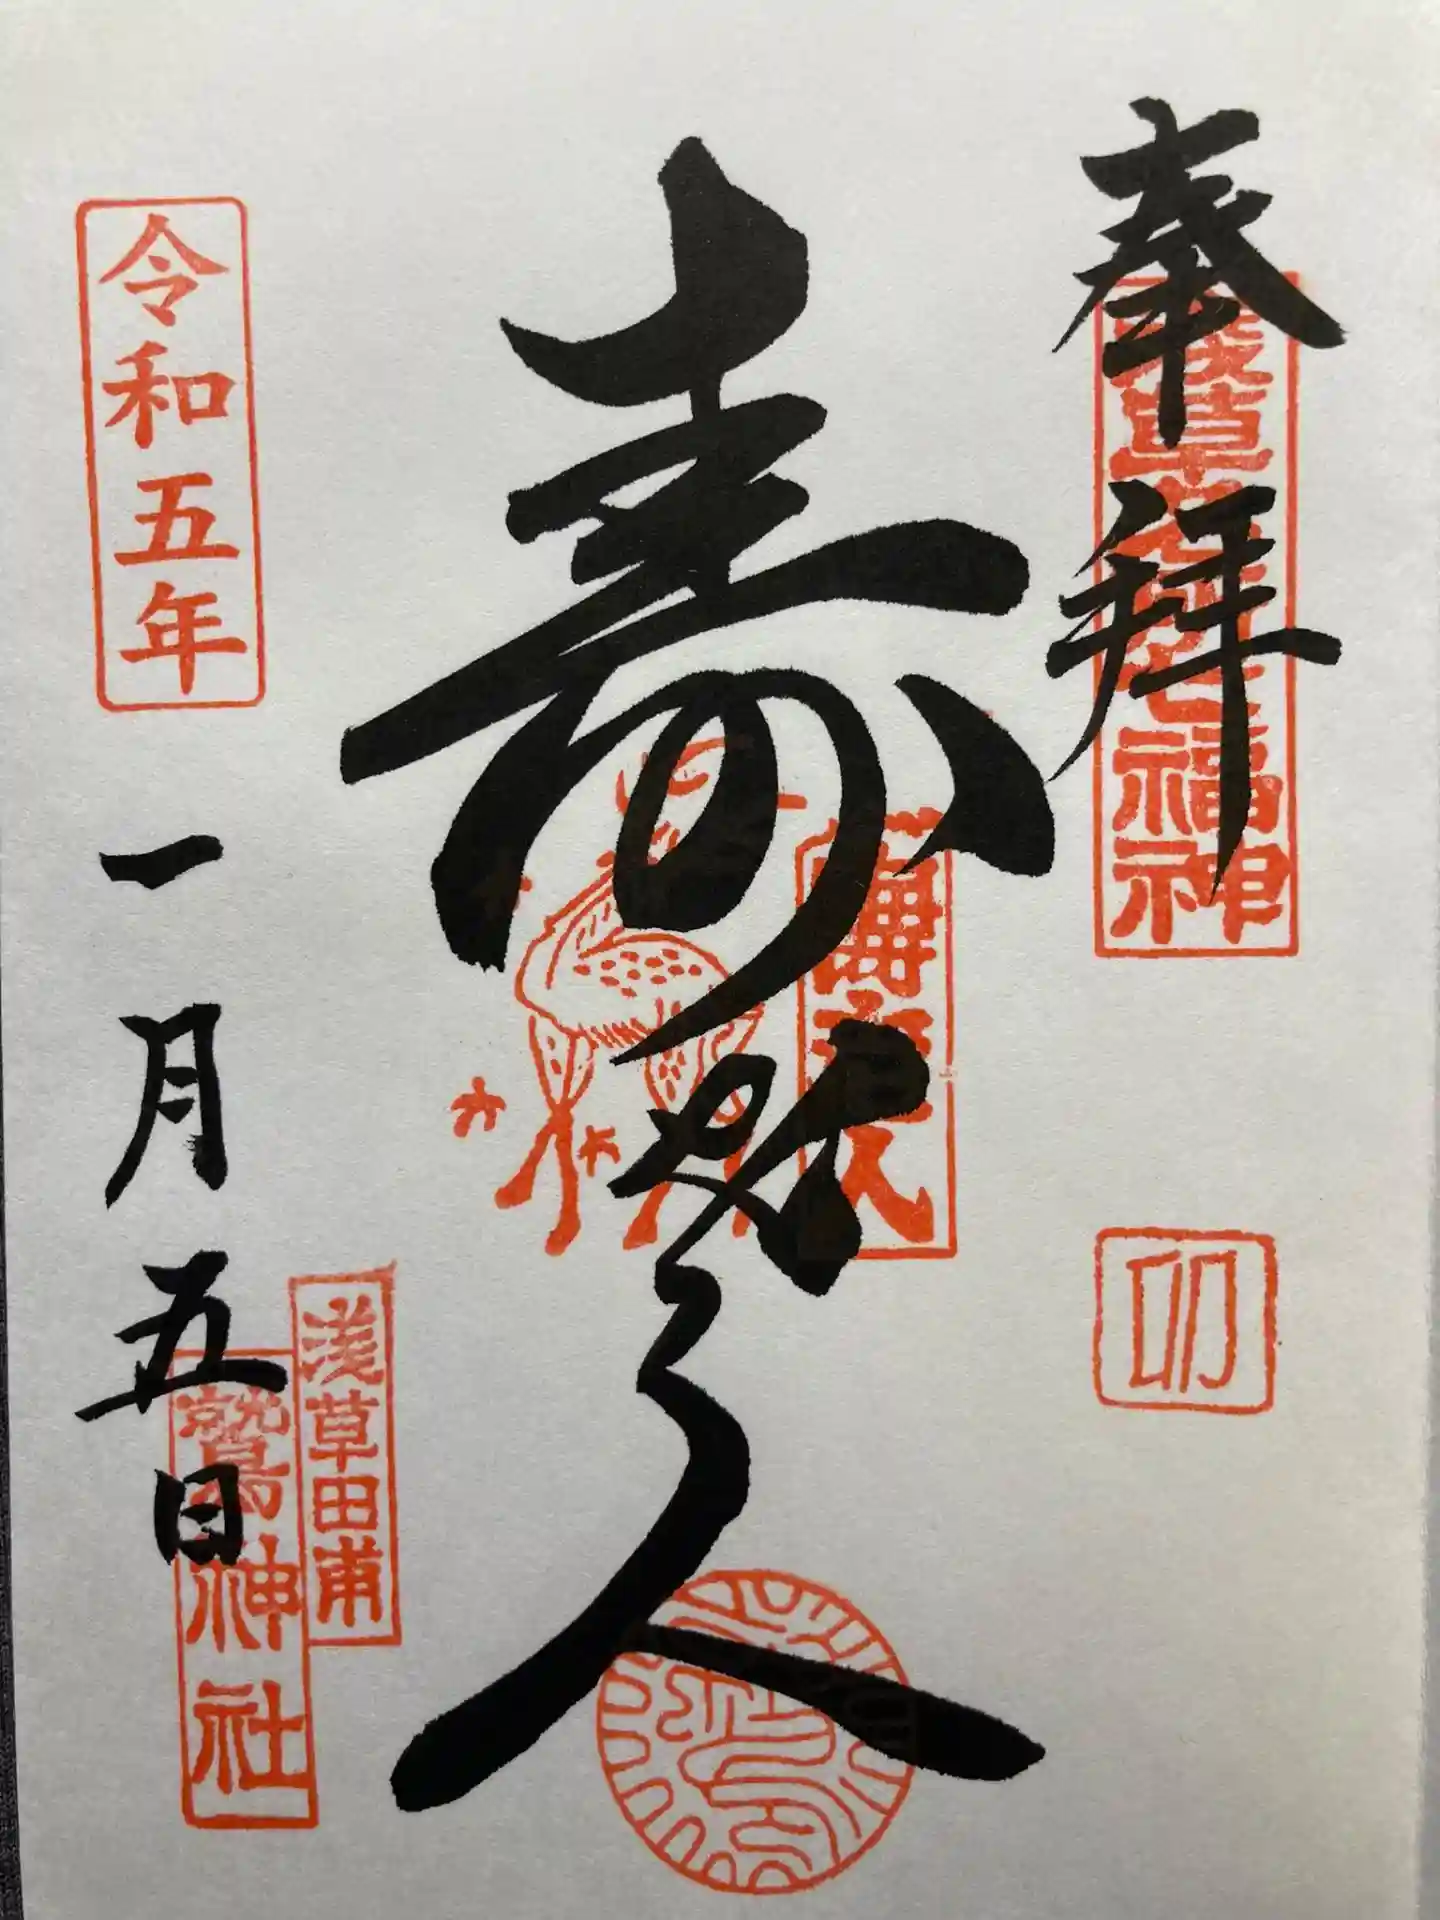 奉拝
浅草名所七福神
卯
壽老人
壽老人
令和五年
一月五日
浅草田甫
鷲神社